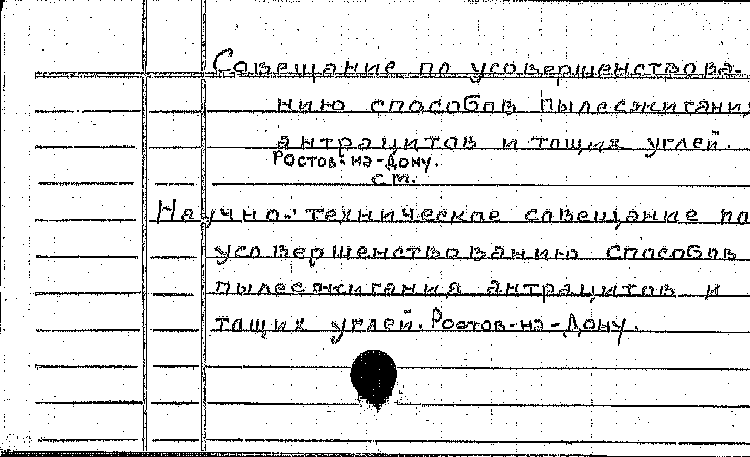 Совещание по усовершенствова-
нию способов пылесжигания
антрацитов и тощих углей.
Ростов-на-Дону.
см.
Научно-техническое совещание по
усовершенствованию способов
пылесжигания антрацитов и
тощих углей. Ростов-на-Дону.